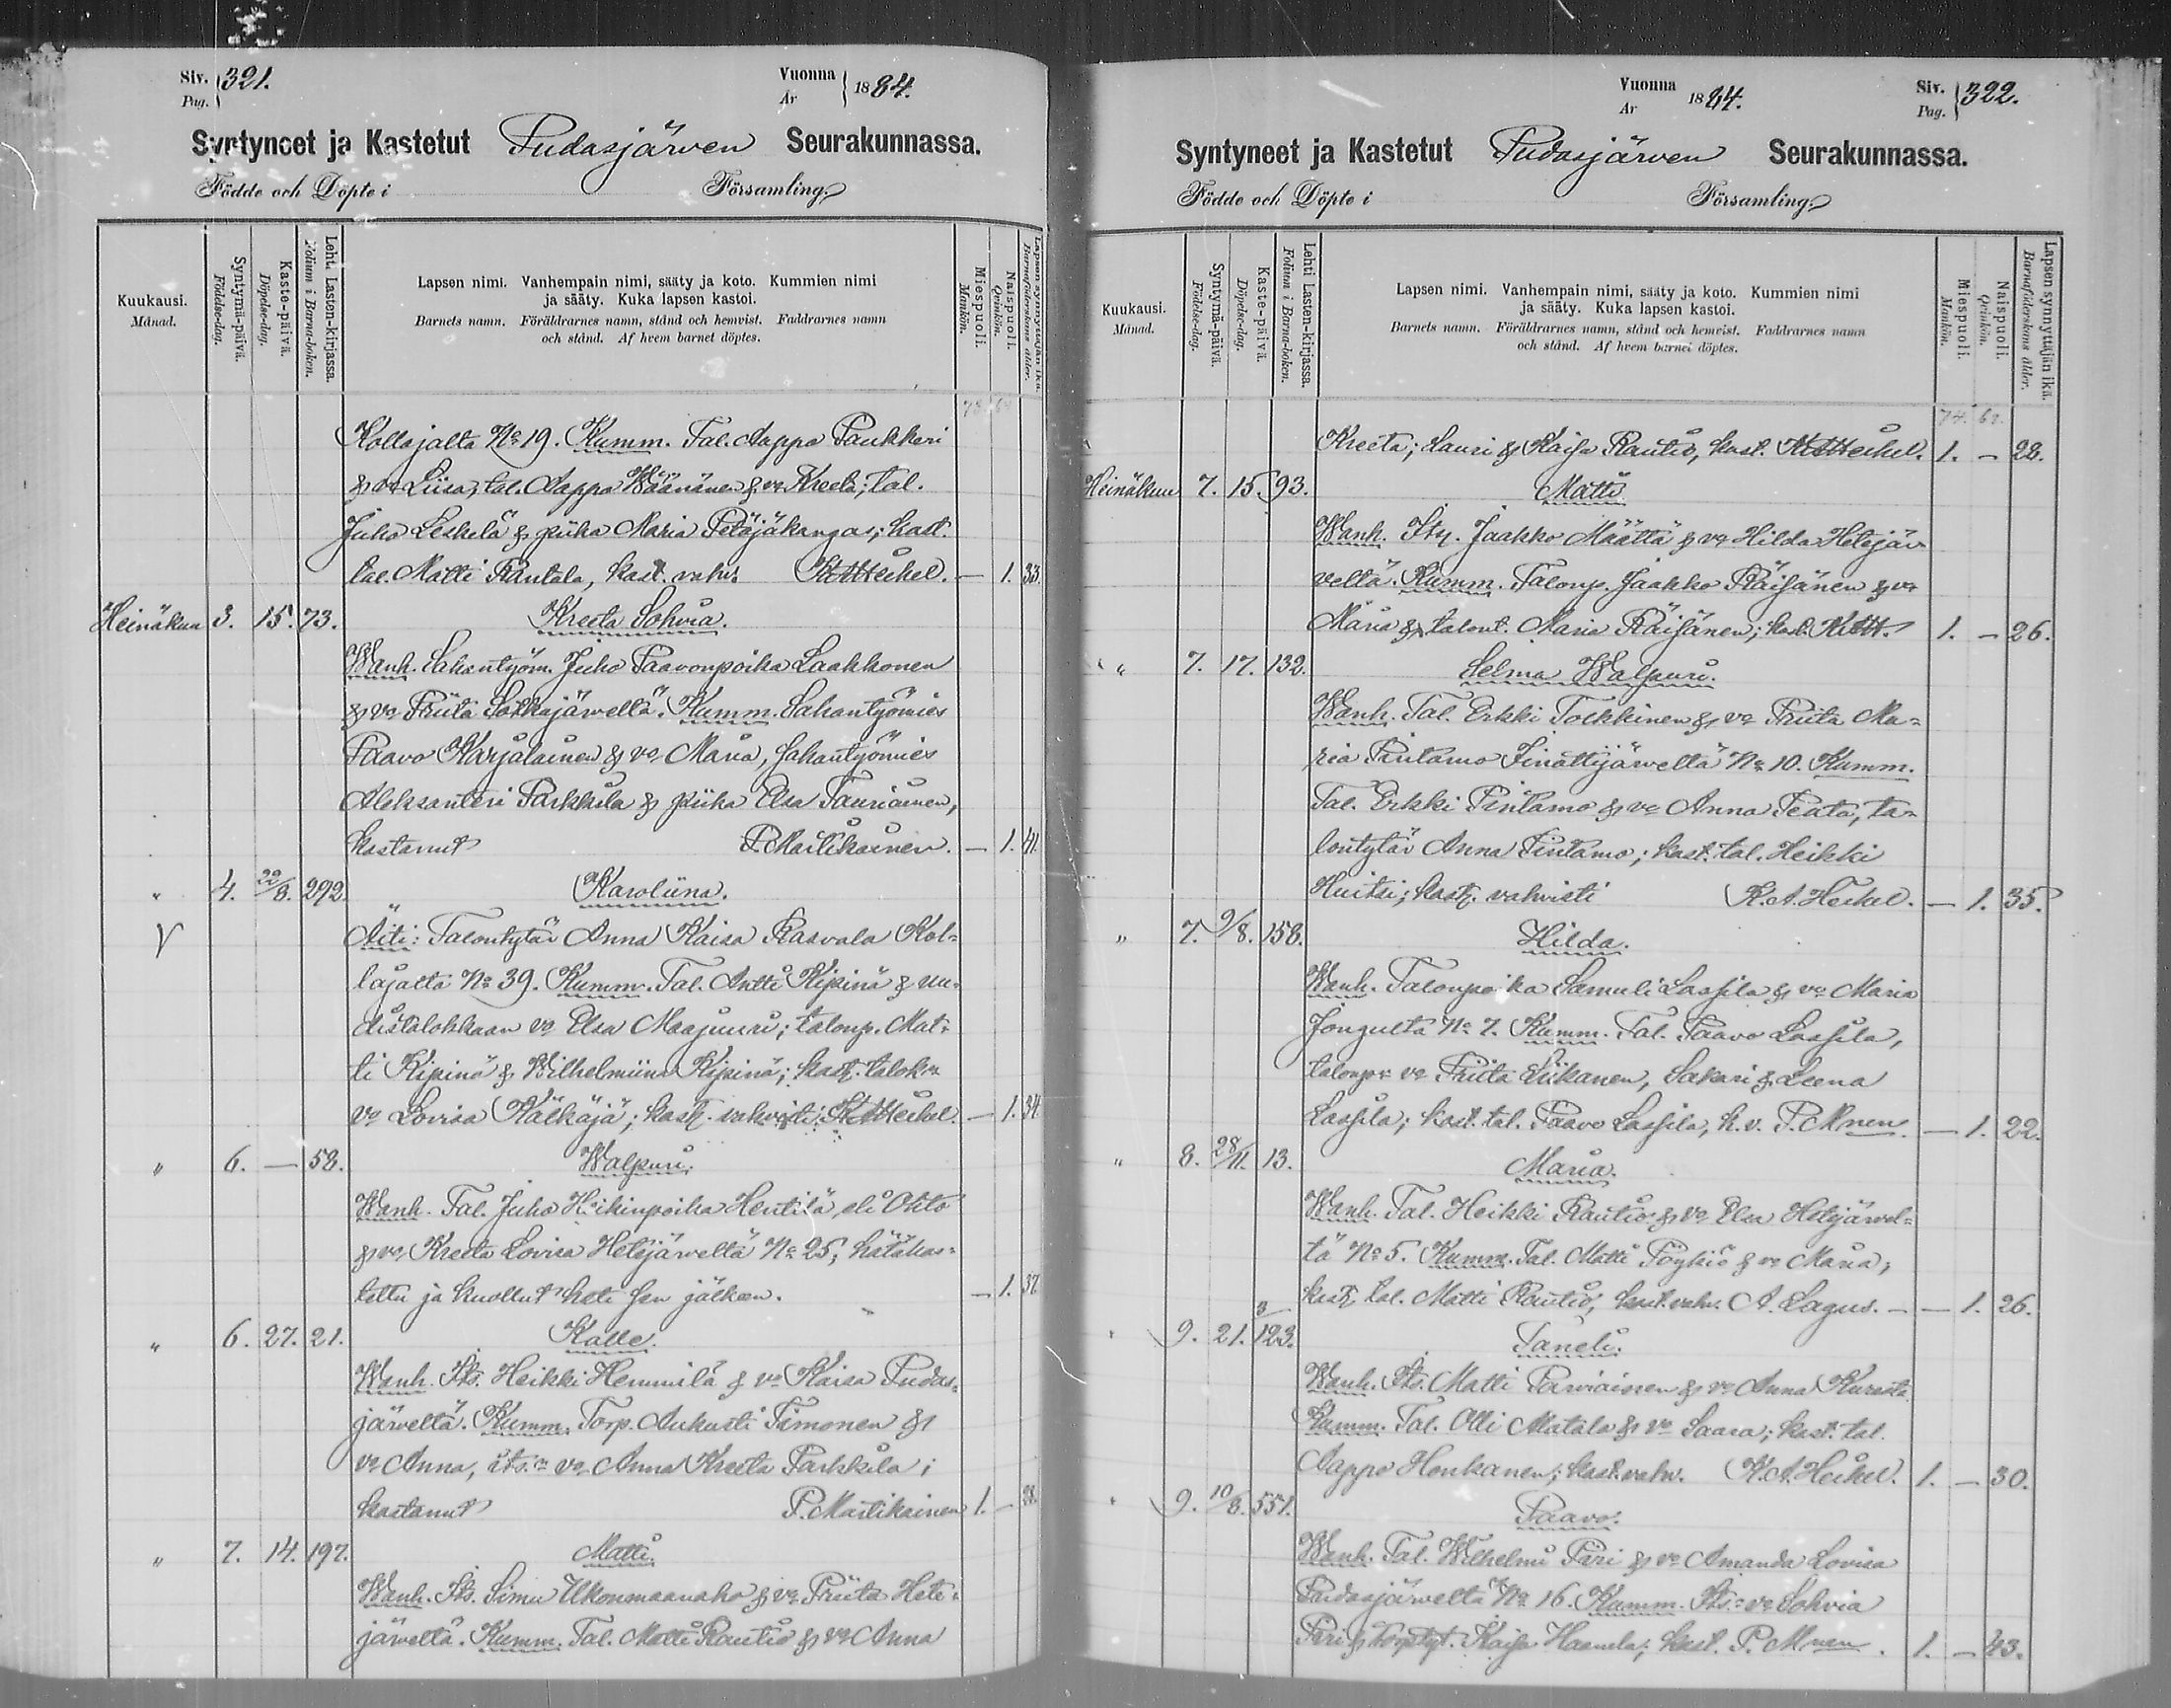 Siv. 321.
Pag.
Vuonna 1884.
År
Syntyneet ja Kastetut Pudasjärven Seurakunnassa.
Födde och Döpte i Församling.
Kuukausi.
Månad.
Syntymä-päivä.
Födelse-dag.
Kaste-päivä.
Döpelse-dag.
Lehti Lasten-kirjassa.
Folium i Barna-boken.
Lapsen nimi. Vanhempain nimi, sääty ja koto. Kummien nimi
ja sääty. Kuka lapsen kastoi.
Barnets namn. Föräldrarnes namn, stånd och hemvist. Faddrarnes namn
och stånd. Af hvem barnet döptes.
Miespuoli.
Mankön.
Naispuoli.
Qvinkön.
Lapsen synnyttäjän ikä.
Barnaföderskans ålder.
Kollajalta No 19. Kumm. Tal. Aappo Paukkeri
& vo Liisa, tal. Aappo Väänänen & vo Kreeta; tal.
Juho Leskelä & piika Maria Petäjäkangas; kast.
tal. Matti Rantala, kast. vahv. K.A. Heikel. — 1. 33.
Heinäkuu 3. 15. 73. Kreeta Sohvia.
Wanh. Sahantyöm. Juho Paavonpoika Laakkonen
& vo Priita Sotkajärveltä. Kumm. Sahantyömies
Paavo Karjalainen & vo Maria, sahantyömies
Aleksanteri Parkkila & piika Elsa Tauriainen,
kastanut P. Martikainen. — 1. 41.
" 4. 22/8. 292. Karoliina.
V Äiti: Talontytär Anna Kaisa Rasvala Kol-
lajalta No 39. Kumm. Tal. Antti Kipinä & uu-
distalokkaan vo Elsa Maajuuri; talonp. Mat-
ti Kipinä & Wilhelmiina Kipinä; kast. talok:n
vo Lovisa Kälkäjä; kast. vahvisti: K.A. Heikel. — 1. 34.
" 6. — 58. Walpuri.
Wanh. Tal. Juho Heikinpoika Hentilä eli Ohto
& vo Kreeta Lovisa Hetejärveltä No 25; hätäkas-
tettu ja kuollut heti sen jälkeen. — 1. 37.
" 6. 27. 21. Kalle.
Wanh. Its. Heikki Hemmilä & vo Kaisa Pudas-
järveltä. Kumm. Torp. Aukusti Timonen &
vo Anna, its:n vo Anna Kreeta Parkkila;
kastanut P. Martikainen 1. — 28.
" 7. 14. 197. Matti.
Wanh. Its. Simu Ukonmaanaho & vo Priita Hete-
järveltä. Kumm. Tal. Matti Rautio & vo Anna
Vuonna 1884.
År
Siv. 322.
Pag.
Syntyneet ja Kastetut Pudasjärven Seurakunnassa.
Födde och Döpte i Församling.
Kuukausi.
Månad.
Syntymä-päivä.
Födelse-dag.
Kaste-päivä.
Döpelse-dag.
Lehti Lasten-kirjassa.
Folium i Barna-boken.
Lapsen nimi. Vanhempain nimi, sääty ja koto. Kummien nimi
ja sääty. Kuka lapsen kastoi.
Barnets namn. Föräldrarnes namn, stånd och hemvist. Faddrarnes namn
och stånd. Af hvem barnet döptes.
Miespuoli.
Mankön.
Naispuoli.
Qvinkön.
Lapsen synnyttäjän ikä.
Barnaföderskans ålder.
74. 62.
Kreeta; Lauri & Kaisa Rautio, kast. K.A. Heikel. 1. — 28.
Heinäkuu 7. 15. 93. Matti
Wanh. Jaakko Määttä & vo Hilda Hetejär-
veltä. Kumm. Talonp. Jaakko Räisänen & vo
Maria & talont. Maria Räisänen; kast. K.A.H. 1. — 26.
" 7. 17. 132. Selma Walpuri.
Wanh. Tal. Erkki Tolkkinen & vo Priita Ma-
ria Pintamo Iinattijärveltä No 10. Kumm.
Tal. Erkki Pintamo & vo Anna Peata, ta-
lontytär Anna Pintamo; kast. tal. Heikki
Huitsi; kast. vahvisti K.A. Heikel. — 1. 35.
" 7. 9/8. 158. Hilda.
Wanh. Talonpoika Samuli Lassila & vo Maria
Jongulta No 7. Kumm. Tal. Paavo Lassila,
talonp:n vo Priita Liikanen, Sakari & Leena
Lassila; kast. tal. Paavo Lassila, k.v. P. Mnen. — 1. 22.
" 8. 28/11. 13. Maria.
Wanh. Tal. Heikki Rautio & vo Elsa Hetejärvel-
tä No 5. Kumm. Tal. Matti Pöykiö & vo Maria;
kast. tal. Matti Rautio, kast. vahv. A. Lagus. — 1. 26.
" 9. 21. 123. Taneli.
Wanh. Its. Matti Parviainen & vo Anna Kurelta
Kumm. Tal. Olli Matala & vo Saara; kast. tal.
Aappo Honkanen; kast. vahv. K.A. Heikel. 1. — 30.
" 9. 10/8. 551. Paavo.
Wanh. Tal. Wilhelmi Piri & vo Amanda Lovisa
Pudasjärveltä No 16. Kumm. Its:n vo Sohvia
Piri & Kaisa Haanela; kast. P. Mnen. 1. — 43.